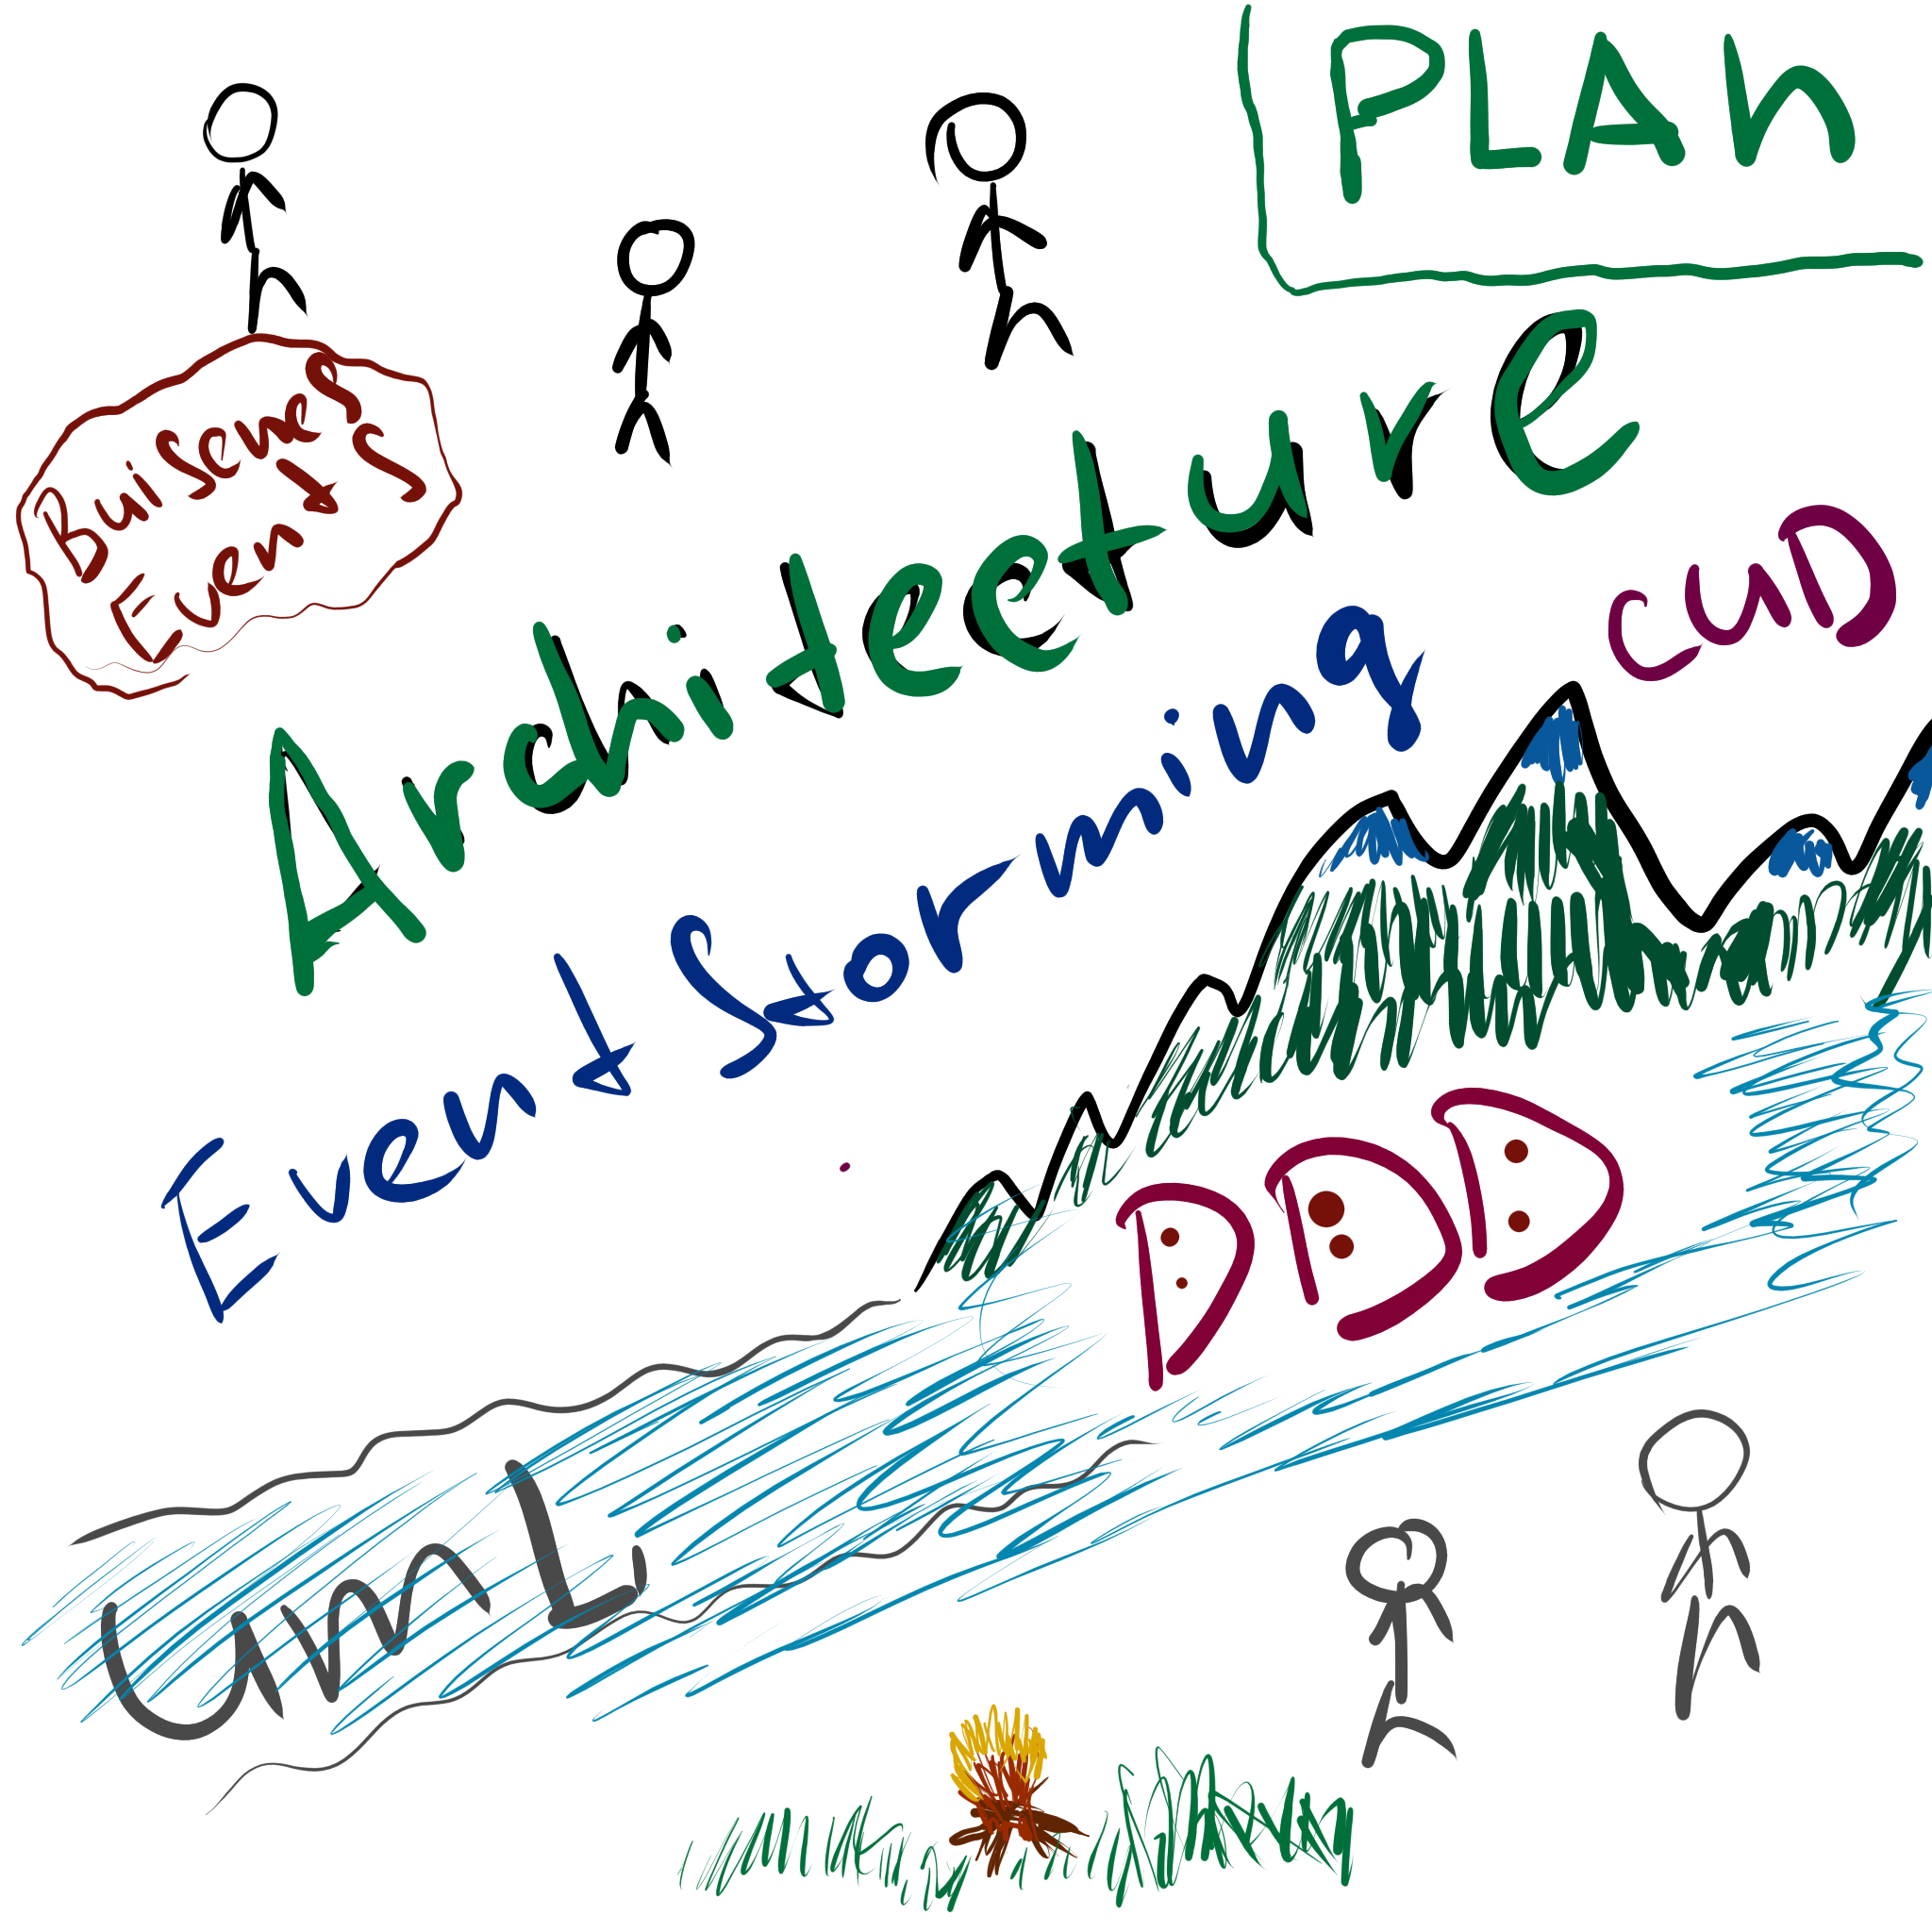 PLAn
Buisanes
Events
Architecture
CUD
Event Storming
DDD
UmL